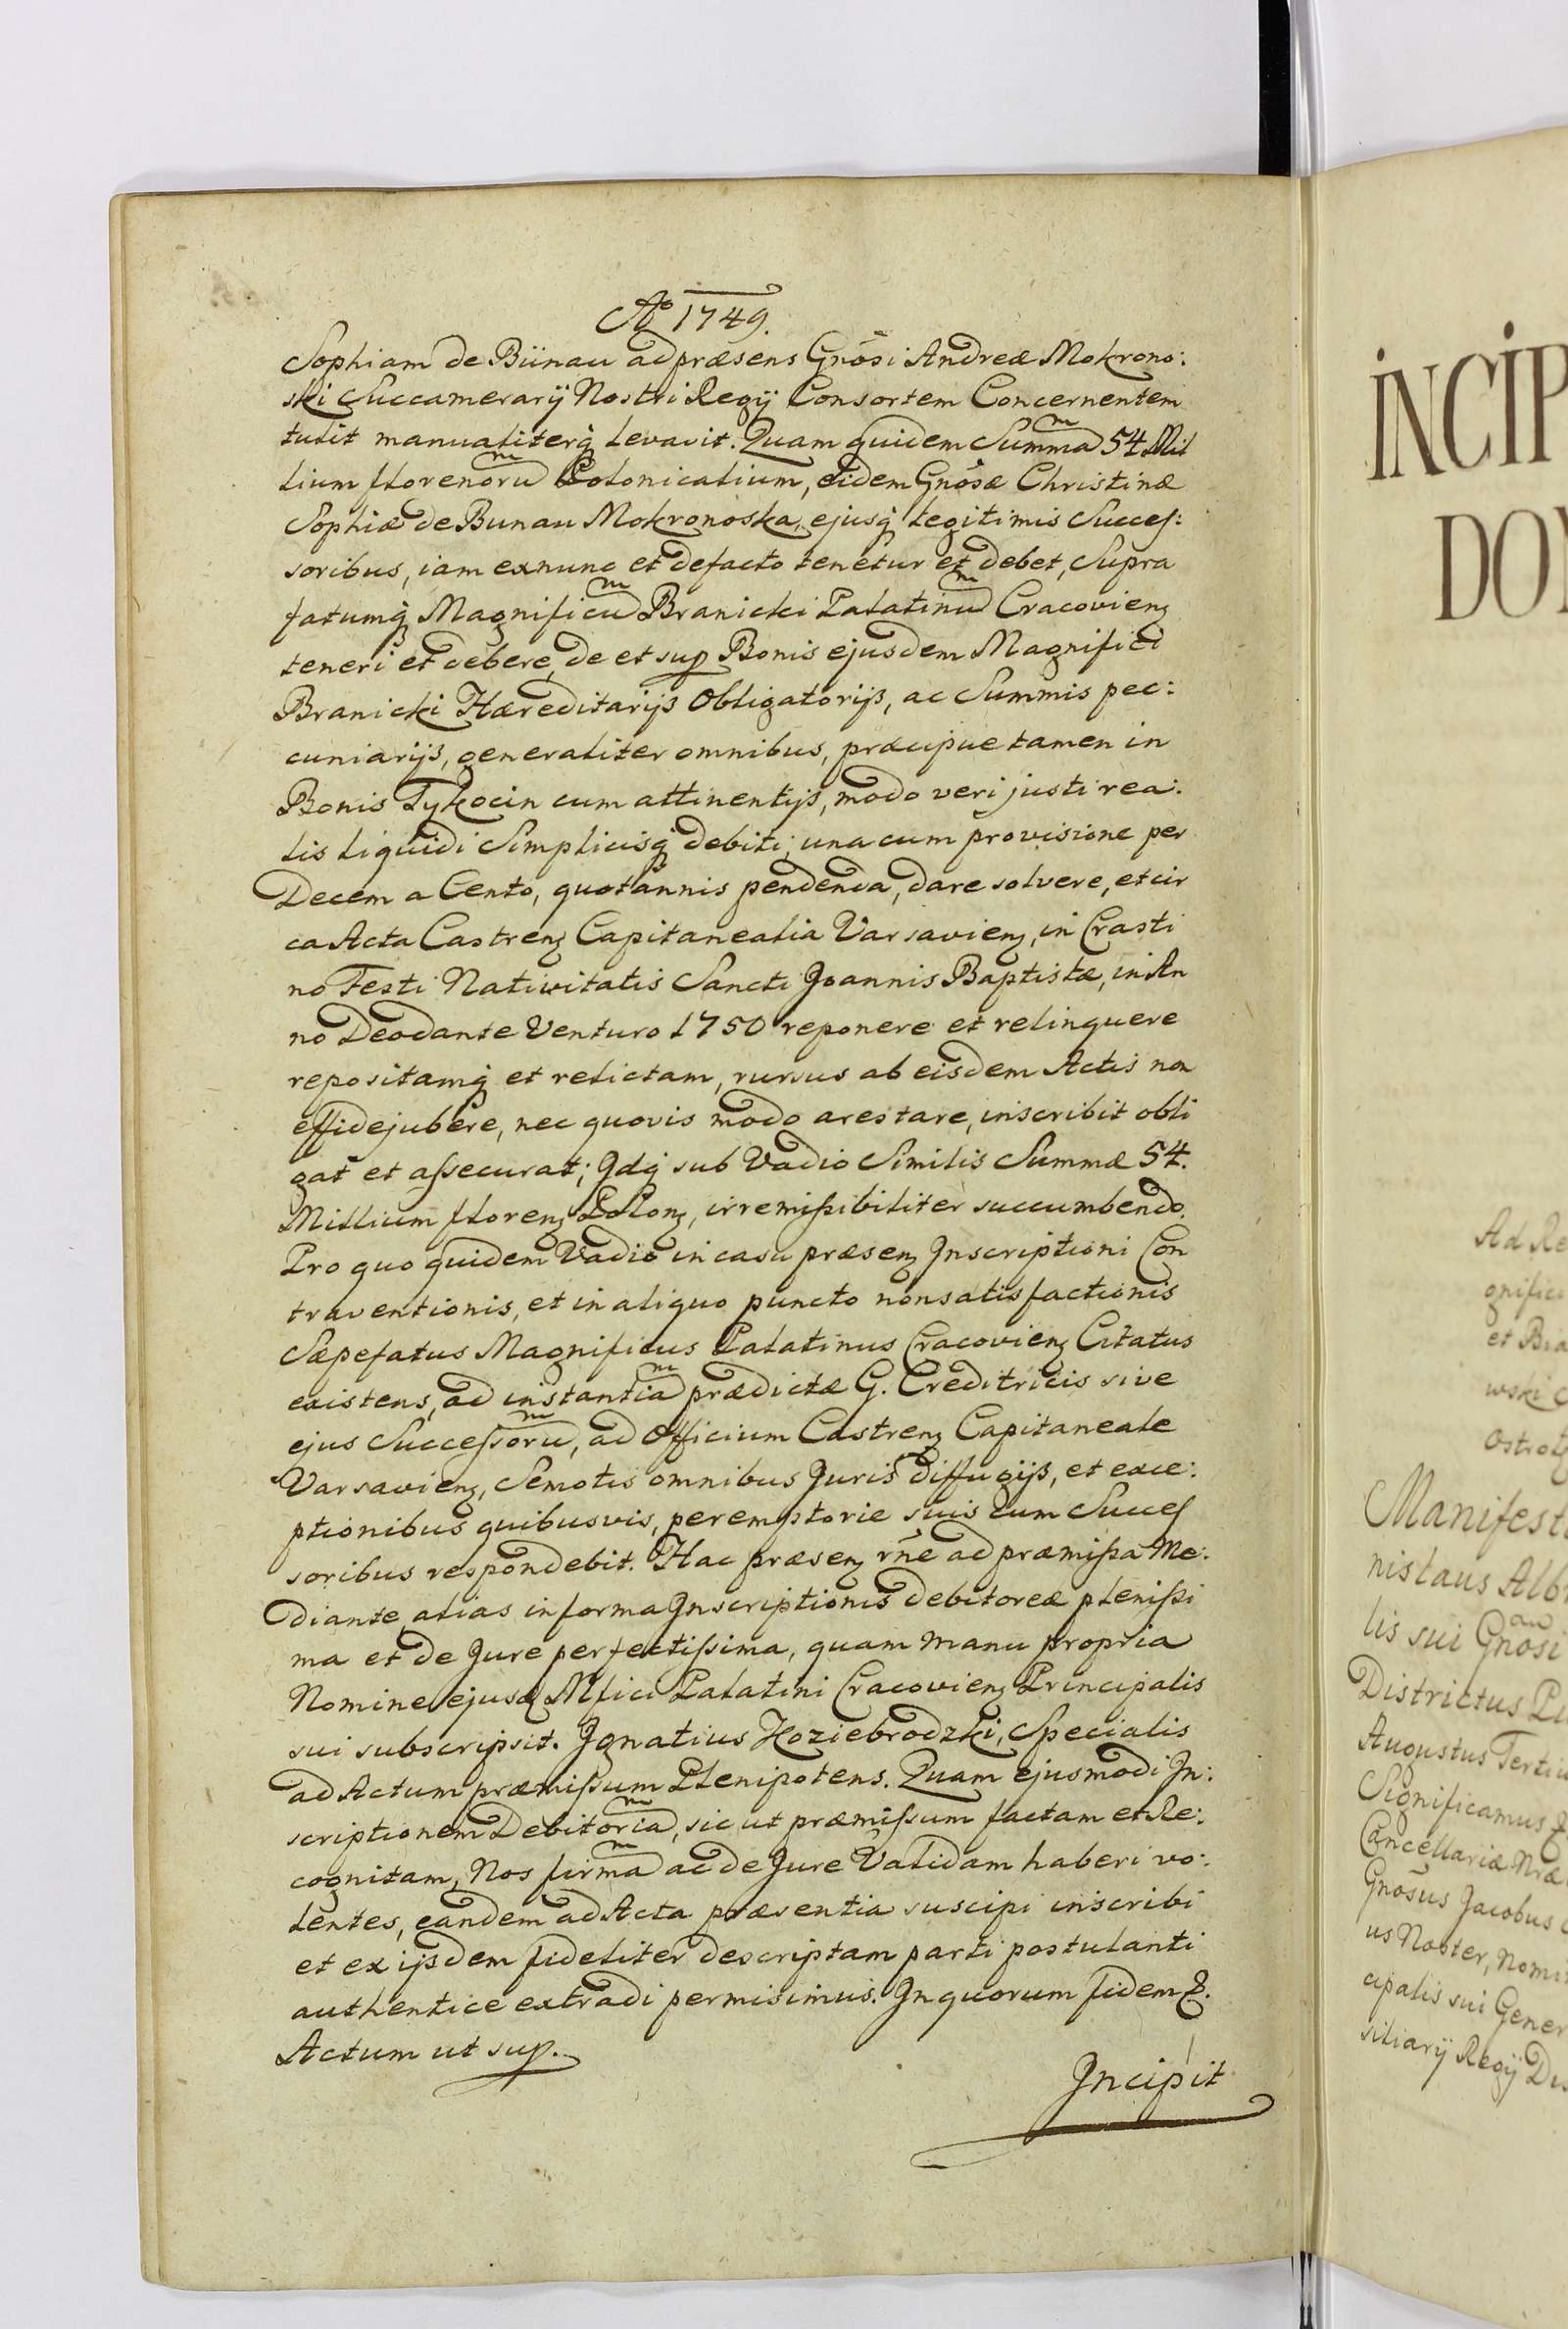 Aº 1749.
Sophiam de Bünau ad præsens Gnosi Andreæ Mokrono:
ski Succamerarÿ Nostri Regÿ Consortem Concernentem
tulit manualiterq̃ levavit. Quam quidem Summa͞m 54 Mil
lium florenoru͞m Polonicalium, eidem Gnosæ Christinæ
Sophiæ de Bunau Mokronoska, ejusq̃ legitimis Succeſ:
soribus, iam exnunc et defacto tenetur et debet, Supra
fatumq̃ Magnificu͞m Branicki Palatinu͞m Cracovienȝ
teneri et debere, de et sup Bonis ejusdem Magnifici
Branicki Hæreditarijs Obligatorijs, ac Summis pec:
cuniarijs, generaliter omnibus, præcipue tamen in
Bonis Tykocin cum attinentijs, modo veri justi rea:
lis liquidi Simplicisq̃ debiti, una cum provisione per
Decem a Cento, quotannis pendenda, dare solvere, et cir
ca Acta Castrenȝ Capitanealia Varsavienȝ, in Crasti
no Festi Nativitatis Sancti Joannis Baptistæ, in An
no Deodante Venturo 1750 reponere et relinquere
repositamq̃ et relictam, rursus ab eisdem Actis non
effidejubere, nec quovis modo arestare, inscribit obli
gat et aſsecurat; Jdq̃ sub Vadio Similis Summæ 54.
Millium florenȝ Polonȝ, irremiſsibiliter succumbendo.
Pro quo quidem Vadio in casu præsenȝ Jnscriptioni Con
traventionis, et in aliquo puncto non satisfactionis
Sæpefatus Magnificus Palatinus Cracovienȝ Citatus
existens, ad instantia͞m prædictæ G. Creditricis sive
ejus Succeſsoru͞m, ad Officium Castrenȝ Capitaneale
Varsavienȝ, Semotis omnibus Juris diffugijs, et exce:
ptionibus quibusvis, peremptorie suis cum Succeſ
soribus respondebit. Hac præsenȝ rñe ad præmiſsa Me:
diante, alias in forma Jnscriptionis debitoreæ pleniſsi
ma et de Jure perfectiſsima, quam manu propria
Nomine ejusd Mfici Palatini Cracovienȝ Principalis
sui subscripsit. Jgnatius Koziebrodzki, Specialis
ad Actum præmiſsum Plenipotens. Quam ejusmodi Jn:
scriptionem Debitoria͞m, sic ut præmiſsum factam et Re:
cognitam, Nos firma͞m ac de Jure Validam haberi vo:
lentes, eandem ad Acta præsentia suscipi inscribi
et ex ijsdem fideliter descriptam parti postulanti
authentice extradi permisimus. Jn quorum fidem &.
Actum ut sup.
Jncipit
INCIP
DOM
Ad Re
gnifici
et Bia
wski
Ostrol
Manifest
nislaus Alb
lis sui Gnosi
Districtus
Augustus Tertiu
Significamus
Cancellariæ Nræ
Gnosus Jacobus
us Noster, Nomi
cipalis sui Gener
siliarÿ Regÿ